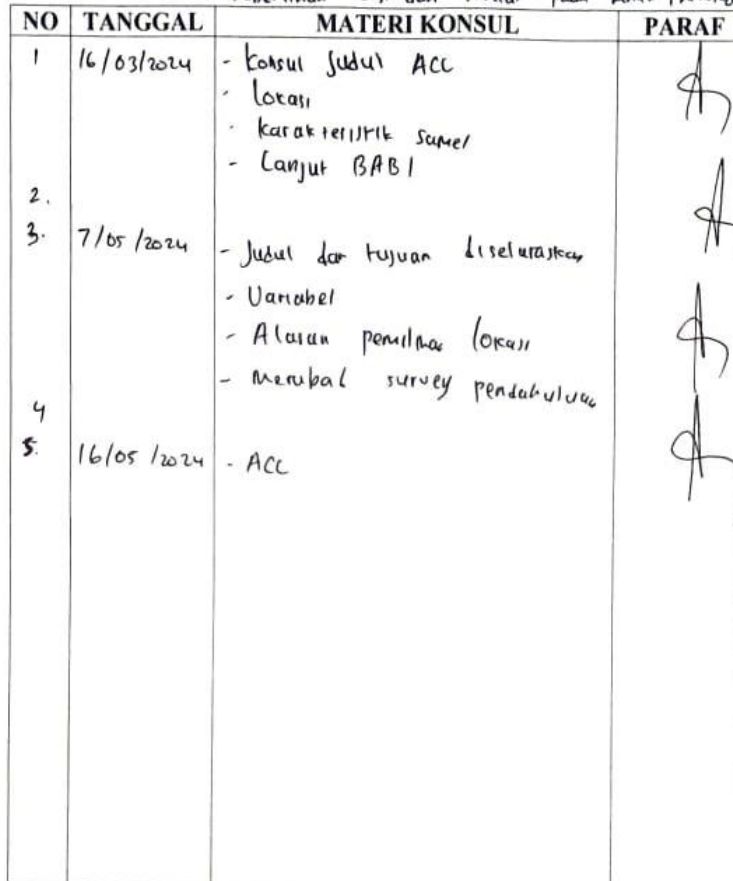 NO TANGGAL MATERI KONSUL PARAF
1 16/03/2024 - Konsul Judul ACC
- Lokasi
- karakteristik
- Lanjut BAB I
2.
3. 7/05/2024 - Judul dan tujuan diselaraskan
- Variabel
- Alasan lokasi
- survey pendahuluan
4
5. 16/05/2024 - ACC